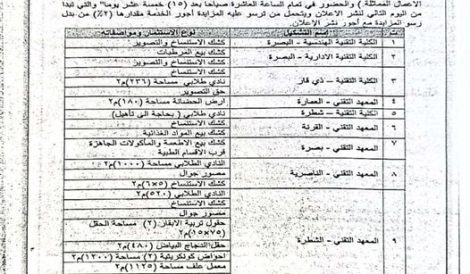 الاعمال المماثلة ) والحضور في تمام الساعة العاشرة صباحا بعد (١٥) خمسة عشر يوما" والتي تبدأ
من اليوم التالي لنشر الاعلان ويتحمل من ترسو عليه المزايدة اجور الخدمة مقدارها (٢٪) من بدل
رسو المزايدة مع أجور نشر الإعلان.
ت إسم التشكيل نوع الاستثمار ومواصفاته
١ الكلية التقنية الهندسية - البصرة كشك الاستنساخ والتصوير
٢ الكلية التقنية الادارية - البصرة كشك بيع المرطبات
كشك الاستنساخ والتصوير
٣ الكلية التقنية – ذي قار نادي طلابي مساحة (٢٣٦)م٢
حق التصوير
٤ المعهد التقني - العمارة ارض الحضانة مساحة (١٨٠)م٢
٥ الكلية التقنية – شطرة نادي طلابي ( بحاجة الى تأهيل)
كشك الاستنساخ
٦ المعهد التقني - القرنة كشك بيع المواد الغذائية
٧ المعهد التقني - بصرة كشك بيع الاطعمة والمأكولات الجاهزة
قرب الاقسام الطبية
٨ المعهد التقني - الناصرية النادي الطلابي مساحة (١٠٠٠)م٢
مصور جوال
كشك الاستنساخ (٥×٦)م٢
٩ المعهد التقني - الشطرة النادي الطلابي (٥٢٠)م٢
كشك الاستنساخ
مصور جوال
حقول تربية الابقار (٢) مساحة الحقل
(١٥×٧٥)م٢
حقل الدجاج البياض (٤٨٠)م٢
احواض كونكريتية (٢) مساحة (١٣٠٠)م٢
معمل علف مساحة (١١٢٥)م٢